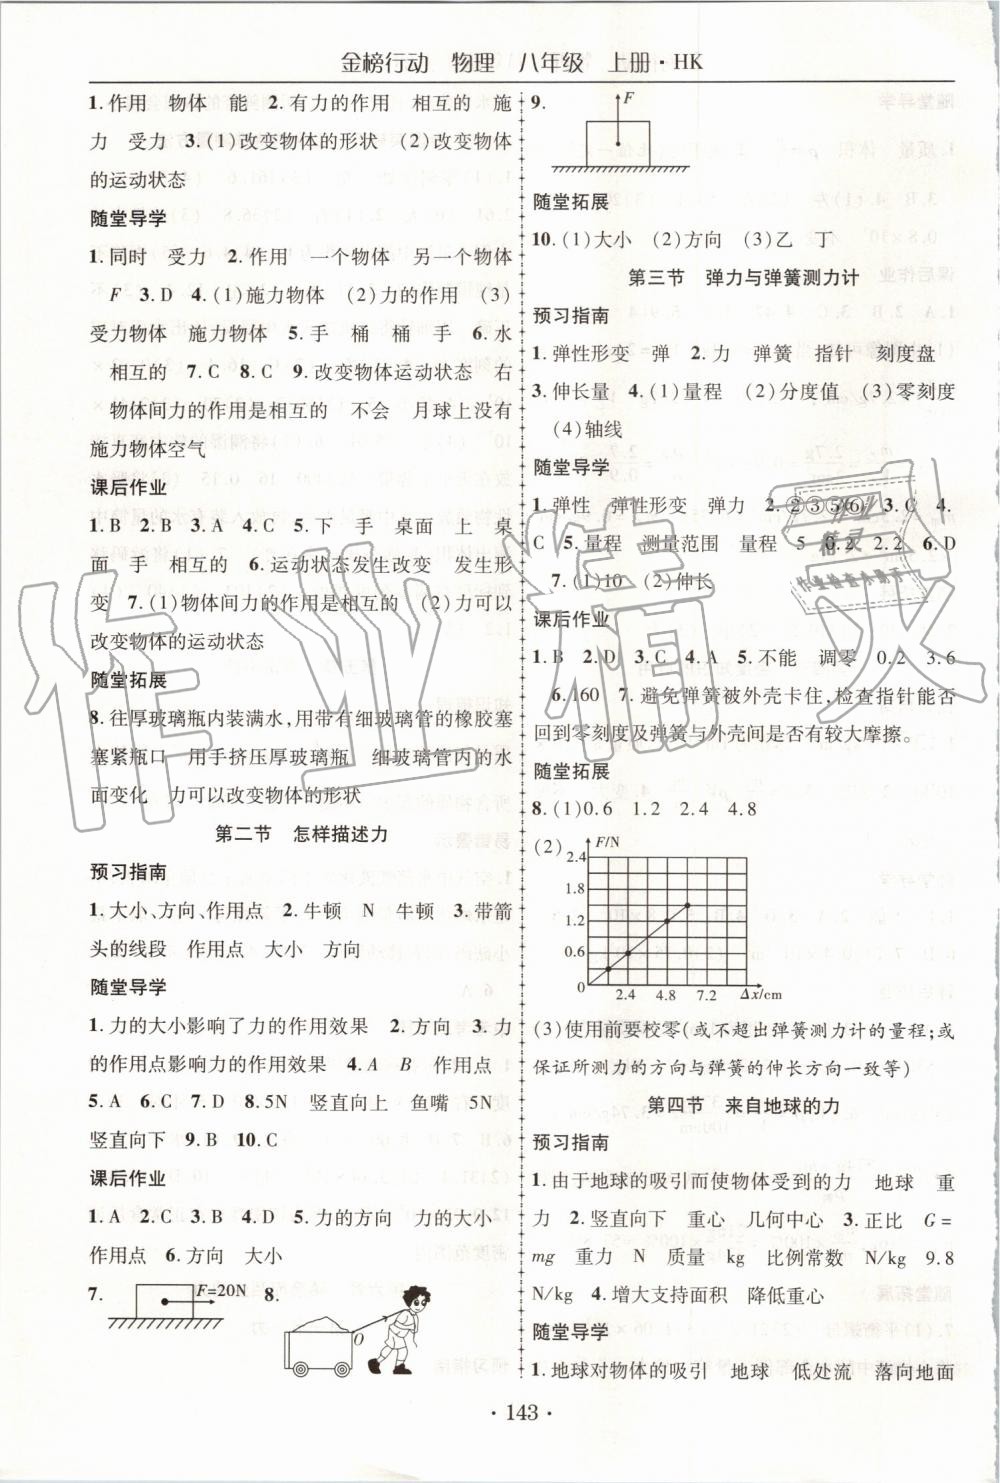 金榜行动 物理 八年级 上册·HK
1.作用 物体 能 2.有力的作用 相互的 施
力 受力 3.(1)改变物体的形状 (2)改变物体
的运动状态
随堂导学
1.同时 受力 2.作用 一个物体 另一个物体
F 3.D 4.(1)施力物体 (2)力的作用 (3)
受力物体 施力物体 5.手 桶 桶 手 6.水
相互的 7.C 8.C 9.改变物体运动状态 右
物体间力的作用是相互的 不会 月球上没有
施力物体空气
课后作业
1.B 2.B 3.A 4.C 5.下 手 桌面 上 桌
面 手 相互的 6.运动状态发生改变 发生形
变 7.(1)物体间力的作用是相互的 (2)力可以
改变物体的运动状态
随堂拓展
8.往厚玻璃瓶内装满水,用带有细玻璃管的橡胶塞
塞紧瓶口 用手挤压厚玻璃瓶 细玻璃管内的水
面变化 力可以改变物体的形状
第二节 怎样描述力
预习指南
1.大小、方向、作用点 2.牛顿 N 牛顿 3.带箭
头的线段 作用点 大小 方向
随堂导学
1.力的大小影响了力的作用效果 2.方向 3.力
的作用点影响力的作用效果 4.A B 作用点
5.A 6.C 7.D 8.5N 竖直向上 鱼嘴 5N
竖直向下 9.B 10.C
课后作业
1.A 2.C 3.B 4.D 5.力的方向 力的大小
作用点 6.方向 大小
7. F=20N 8. O
9. F
随堂拓展
10.(1)大小 (2)方向 (3)乙 丁
第三节 弹力与弹簧测力计
预习指南
1.弹性形变 弹 2.力 弹簧 指针 刻度盘
3.伸长量 4.(1)量程 (2)分度值 (3)零刻度
(4)轴线
随堂导学
1.弹性 弹性形变 弹力 2.②③⑤⑥ 3.C 4.
C 5.量程 测量范围 量程 5 0.2 2.2 6.D
7.(1)10 (2)伸长
课后作业
1.B 2.D 3.C 4.A 5.不能 调零 0.2 3.6
6.160 7.避免弹簧被外壳卡住,检查指针能否
回到零刻度及弹簧与外壳间是否有较大摩擦。
随堂拓展
8.(1)0.6 1.2 2.4 4.8
(2) F/N
2.4
1.8
1.2
0.6
0 2.4 4.8 7.2 Δx/cm
(3)使用前要校零(或不超出弹簧测力计的量程;或
保证所测力的方向与弹簧的伸长方向一致等)
第四节 来自地球的力
预习指南
1.由于地球的吸引而使物体受到的力 地球 重
力 2.竖直向下 重心 几何中心 3.正比 G=
mg 重力 N 质量 kg 比例常数 N/kg 9.8
N/kg 4.增大支持面积 降低重心
随堂导学
1.地球对物体的吸引 地球 低处流 落向地面
· 143 ·
作业精灵